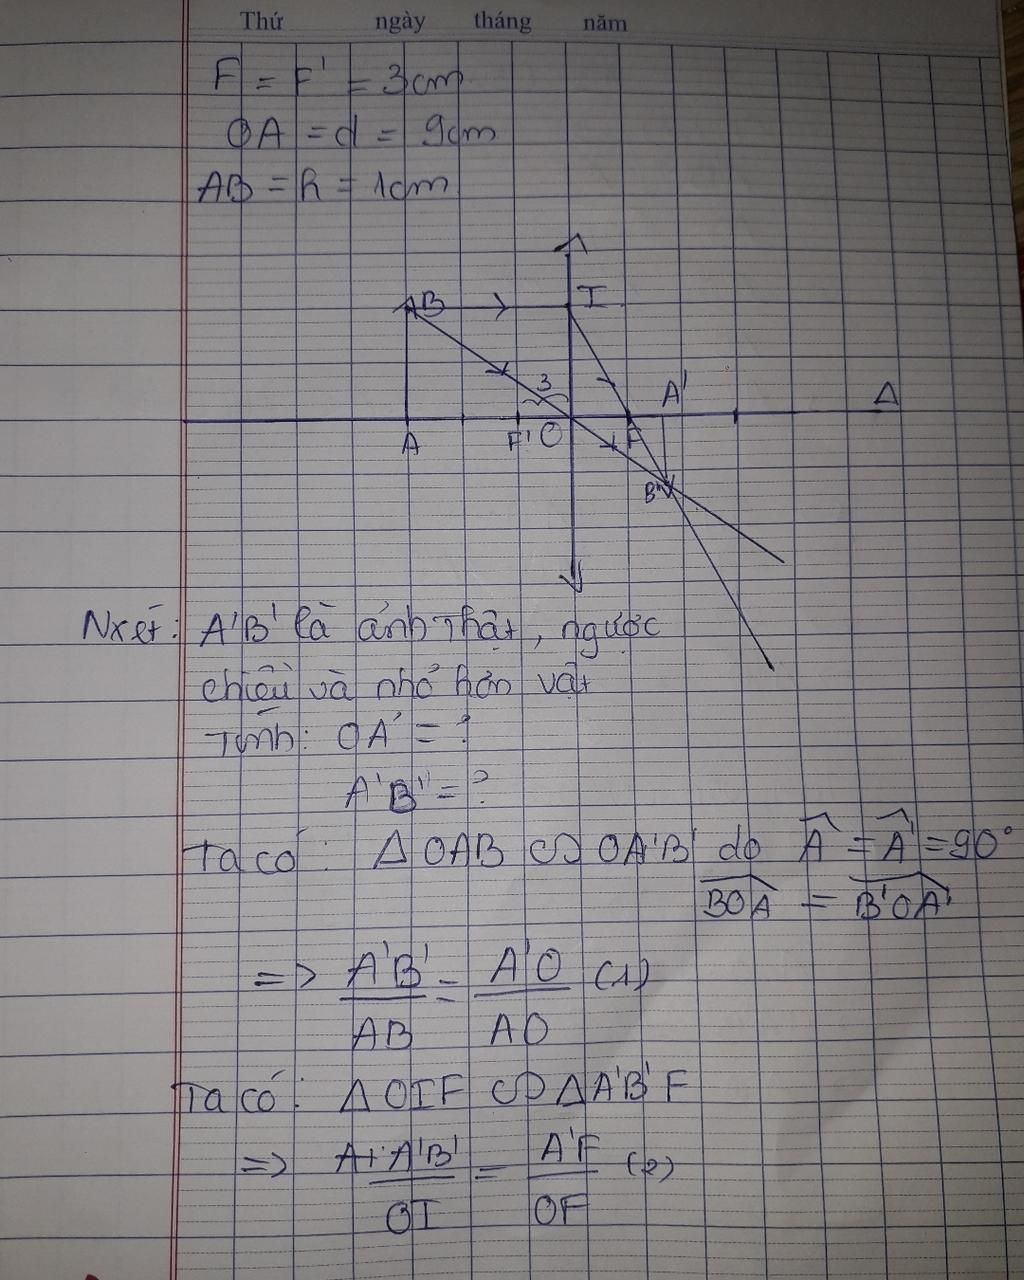 Thứ ngày tháng năm
F = F' = 3cm
OA = d = 9cm
AB = h = 1cm
B I
3 A' Δ
A F' O F
B'
Nxét: A'B' là ảnh thật, ngược
chiều và nhỏ hơn vật
Tính: OA' = ?
A'B' = ?
Ta có: Δ OAB ∽ OA'B' do Â = Â' = 90°
BOA = B'OA'
=> A'B'/AB = A'O/AO (1)
Ta có: Δ OIF ∽ Δ A'B'F
=> A'B'/OI = A'F/OF (2)